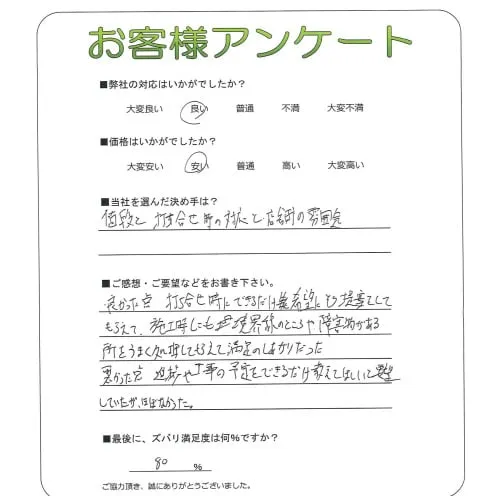 お客様アンケート
■弊社の対応はいかがでしたか?
大変良い 良い 普通 不満 大変不満
■価格はいかがでしたか?
大変安い 安い 普通 高い 大変高い
■当社を選んだ決め手は?
価段と 打合せ時の対応と店舗の雰囲気
■ご感想・ご要望などをお書き下さい。
良かった点 打合せ時にできるだけ希望にそう提案をして
もらえて、施工時にも境界線のところや障害物がある
所をうまく処理してもらえて満足のしあがりだった
悪かった点 進捗や工事の予定をできるだけ教えてほしいと要望
していたが、ほぼなかった。
■最後に、ズバリ満足度は何%ですか?
80 %
ご協力頂き、誠にありがとうございました。